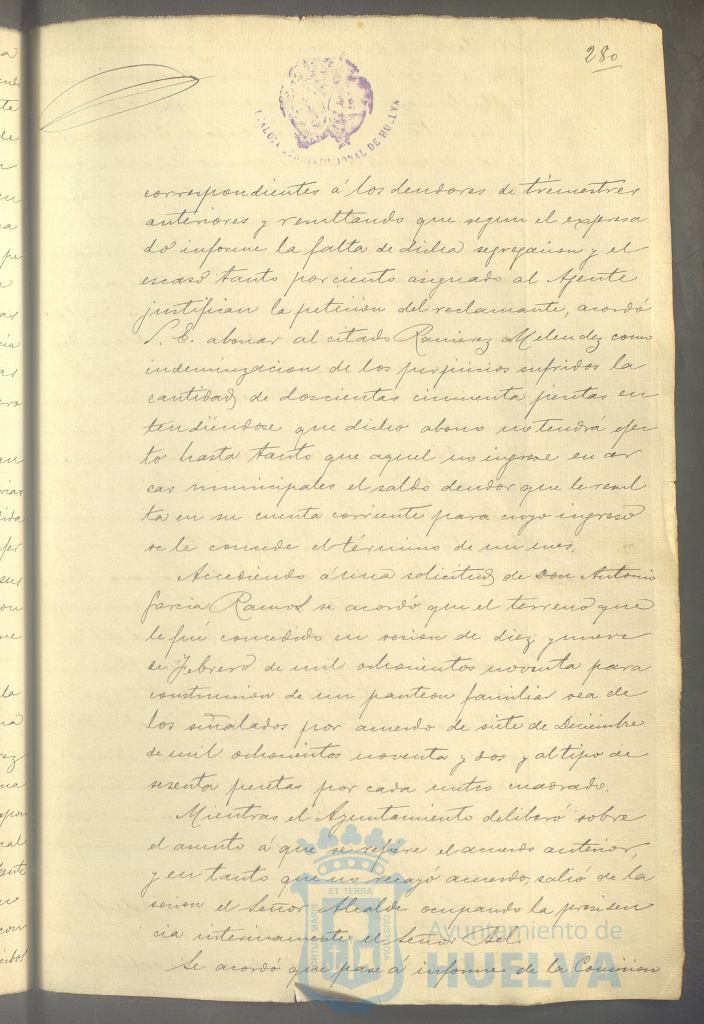 280
ALCALDIA CONSTITUCIONAL DE HUELVA
correspondientes á los deudores de trimestres
anteriores y resultando que segun el expresa
do informe la falta de dicha segregacion y el
escaso tanto por ciento asignado al Agente
justifican la peticion del reclamante, acordó
S. E. abonar al citado Ramirez Melendez como
indemnizacion de los perjuicios sufridos la
cantidad de doscientas cincuenta pesetas en
tendiéndose que dicho abono no tendrá efec
to hasta tanto que aquel no ingrese en ar
cas municipales el saldo deudor que le resul
ta en su cuenta corriente para cuyo ingreso
se le concede el término de un mes.
Accediendo á una solicitud de Don Antonio
Garcia Ramos se acordó que el terreno que
le fué concedido en sesion de diez y nueve
de Febrero de mil ochocientos noventa para
construccion de un panteon familiar sea de
los señalados por acuerdo de siete de Diciembre
de mil ochocientos noventa y dos y al tipo de
sesenta pesetas por cada metro cuadrado.
Mientras el Ayuntamiento deliberó sobre
el asunto á que se refiere el acuerdo anterior,
y en tanto que no recayó acuerdo, salió de la
sesion el Señor Alcalde ocupando la presiden
cia interinamente el Señor
Se acordó que pase á informe de la Comision
ET TERRÆ
PORTUS MARIS
CUSTODIA
Ayuntamiento de
HUELVA